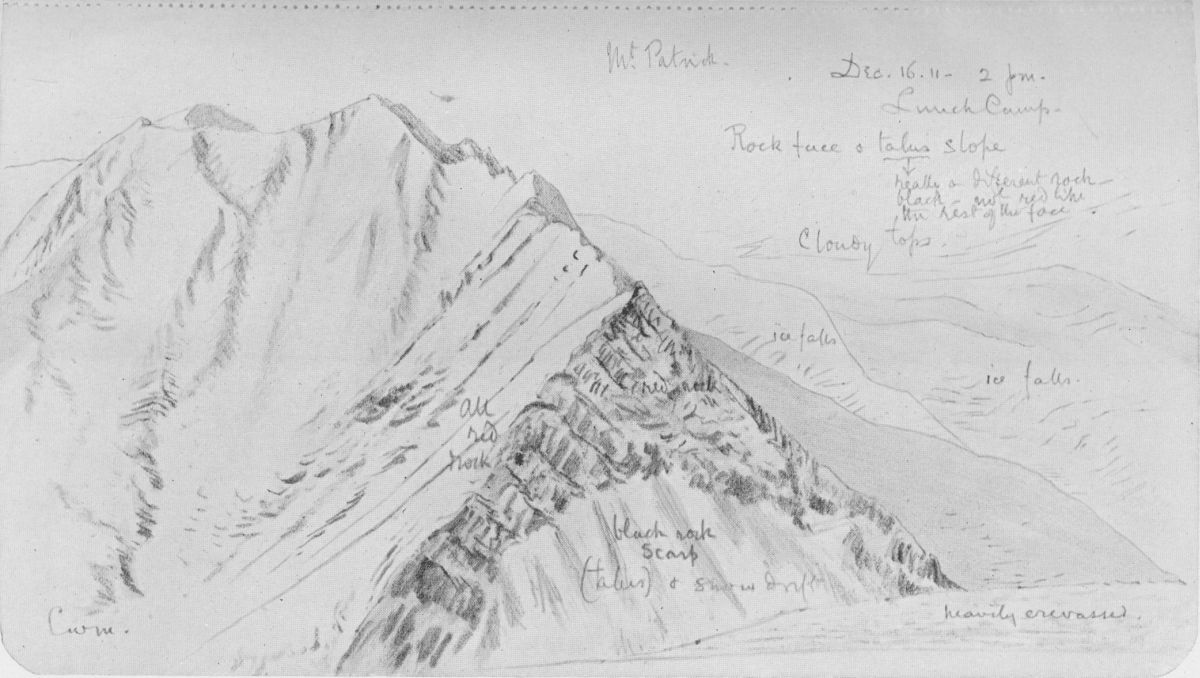 Mt Patrick.
Dec. 16. 11 - 2 pm.
Lunch Camp -
Rock face & talus slope
really a different rock -
black - not red like
the rest of the face.
Cloudy tops.
ice falls
ice falls.
red rock
all
red
rock
black rock
scarp
(talus) & snow drift
Cwm.
heavily crevassed.